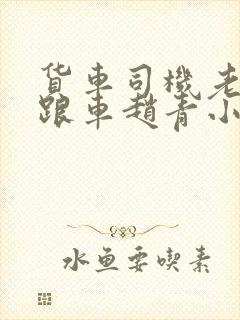 货车司機老
跟車趙青小
水鱼要喫素